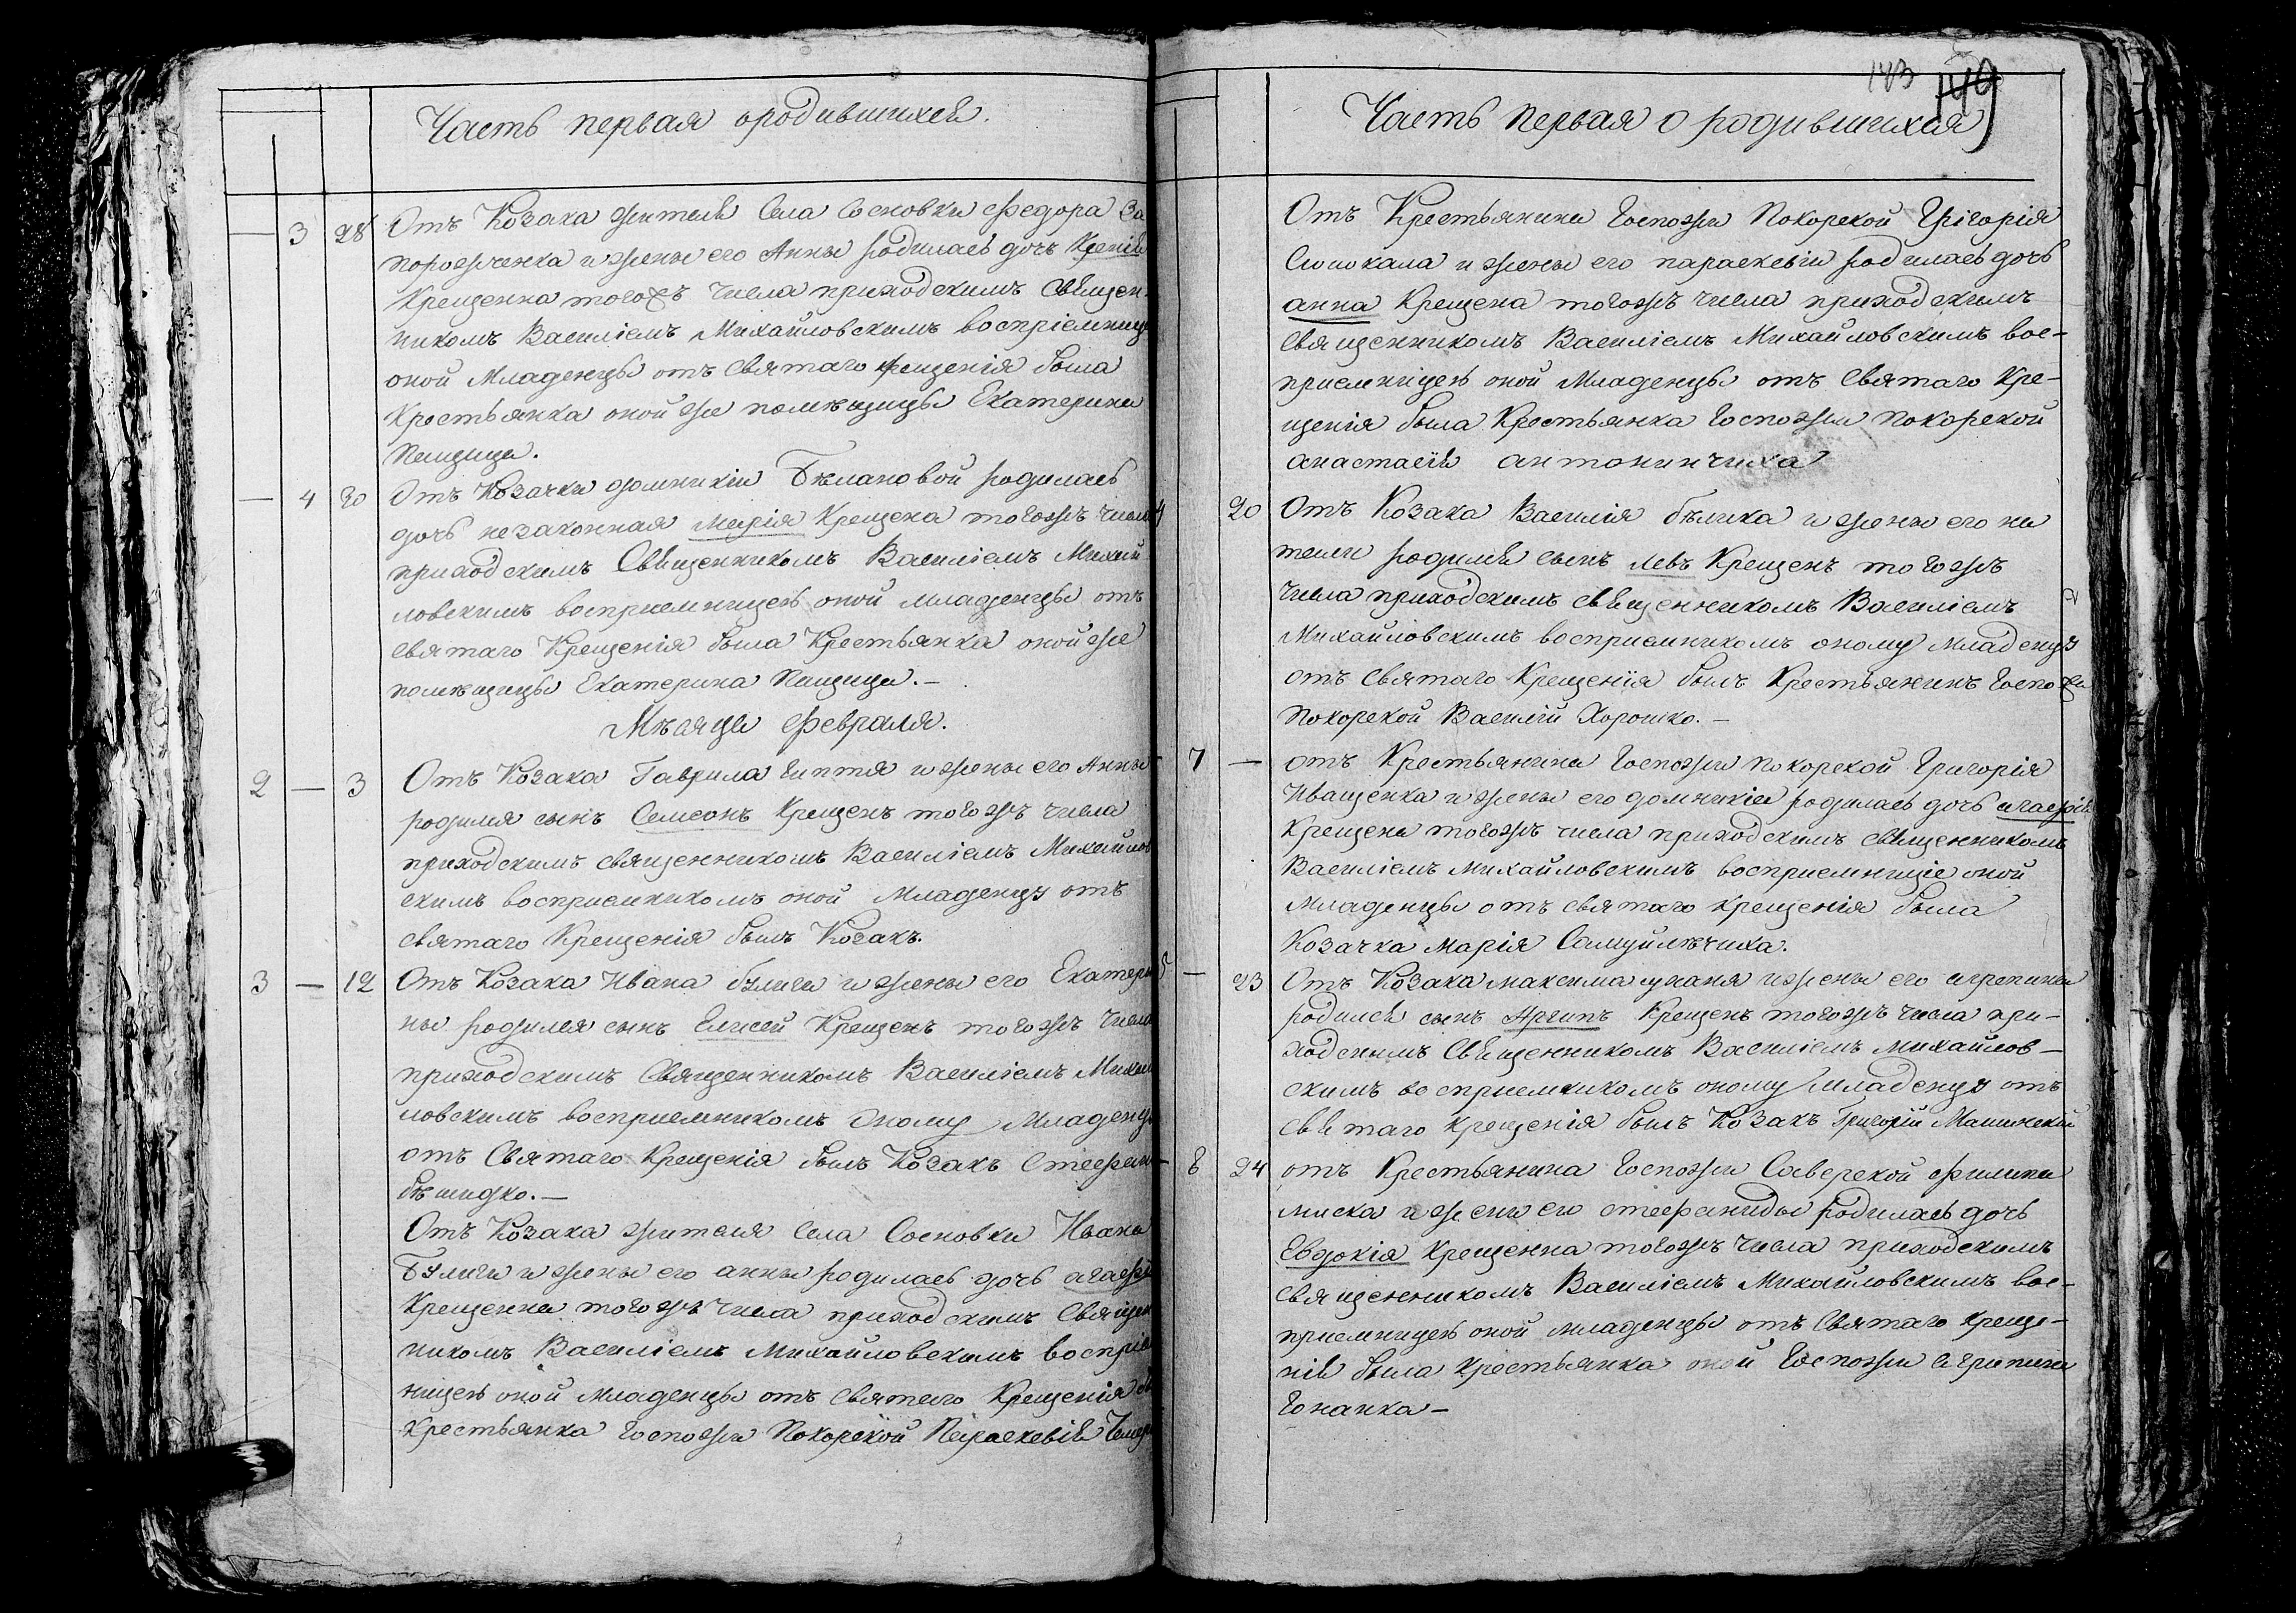 Часть первая ородившихся.
3 28 Отъ Козака жителя Села Сосновки Федора За
порожченка и жены его Анны родилась дочь Ксенія
Крещенна тогожъ числа приходскимъ Священ
никомъ Василіемъ Михайловскимъ воспріемницею
оной Младенцы отъ Святаго крещенія была
Крестьянка оной же помѣщицы Екатерина
Пищица.
— 4 30 Отъ Козачки домникіи Бѣлановой родилась
дочь незаконная Марія Крещена тогожъ числа
приходскимъ Священникомъ Василіемъ Михай
ловскимъ восприемницею оной младенцы отъ
святаго Крещенія была Крестьянка оной же
помѣщицы Екатерина Пищица.—
Мѣсяца Февраля.
2 — 3 Отъ Козака Гаврила и жены его Анны
родился сынъ Самсонъ Крещенъ тогожъ числа
приходскимъ священникомъ Василіемъ Михайлов
скимъ восприемникомъ оной Младенцу отъ
святаго Крещенія былъ Козакъ.
3 — 12 Отъ Козака Ивана булиги и жены его Екатери
ны родился сынъ Елисей Крещенъ тогожъ числа
приходскимъ Священникомъ Василіемъ Михай
ловскимъ восприемникомъ Оному Младенцу
отъ Святаго Крещенія былъ Козакъ Стефанъ

Отъ Козака жителя села Сосновки Ивана
Булиги и жены его анны родилась дочь агафія
Крещенна тогожъ числа приходскимъ Священ
никомъ Василіемъ Михайловскимъ воспріем
ницею оной младенцы отъ святаго Крещенія
Крестьянка Госпожи Покорской Параскевія
143 149
Часть Первая о родившихся
Отъ Крестьянина Госпожи Покорской Григорія
и жены его параскевіи родилась дочь
анна Крещена тогожъ числа приходскимъ
священникомъ Василіемъ Михайловскимъ вос-
приемницею оной Младенцы отъ Святаго Кре-
щенія была Крестьянка Госпожи Покорской
анастасія антонинчиха
4 20 Отъ Козака Василія бѣлика и жены его на
таліи родился сынъ левъ Крещенъ тогожъ
числа приходскимъ священникомъ Василіемъ
Михайловскимъ восприемникомъ оному младенцу
отъ Святаго Крещенія былъ Крестьянинъ Госпожи
Покорской Василій Хорошко.—
7 — отъ Крестьянина Госпожи Покорской Григорія
Иващенка и жены его домникіи родилась дочь агафія
Крещена тогожъ числа приходскимъ священникомъ
Василіемъ Михайловскимъ восприемницею оной
Младенцы отъ святаго крещенія была
Козачка марія Самуйличиха.
5 — 23 Отъ Козака максима и жены его агрепины
родился сынъ Архипъ Крещенъ тогожъ числа при-
ходскимъ священникомъ Василіемъ михайлов-
скимъ восприемникомъ оному младенцу отъ
святаго крещенія былъ Козакъ Григорій Машинскій
— 8 24 отъ Крестьянина Госпожи Саверской Филипа
миска и жены его стефаниды родилась дочь
Евдокія крещенна тогожъ числа приходскимъ
священникомъ Василіемъ Михайловскимъ вос-
приемницею оной младенцы отъ Святаго креще-
нія была крестьянка оной Госпожи агрипина
Гонанка—